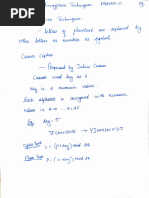 Encryption Techniques
Techniques
- Letters of plaintext are replaced by
other letters or number or symbol.
Caesar cipher
- Proposed by Julius Caesar
Caesar used key as 3
Key is a numeric value
Each alphabet is assigned with numeric
value is a=0 ... z=25
Eg key = 5
TECHNIQUE → YJHMSNVZJ
Cipher Text C = (P+key) mod 26
Plain Text P = (C-key) mod 26